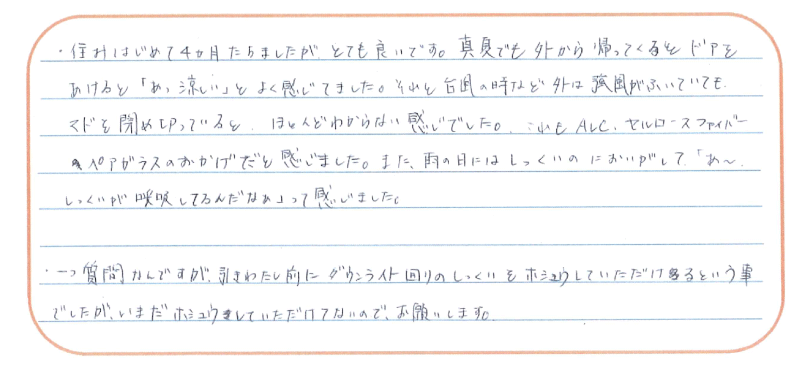 ・住みはじめて4ヵ月たちましたが、とても良いです。真夏でも外から帰ってくるとドアを
あけると「あっ涼しい」とよく感じてました。それと台風の時など外は強風がふいていても、
マドを閉め切っていると、ほとんどわからない感じでした。これもALC、セルロースファイバー
ペアガラスのおかげだと感じました。また、雨の日にはしっくいのにおいがして、「あ〜、
しっくいが呼吸してるんだなぁ」って感じました。
・一つ質問なんですが、引きわたし前にダウンライト回りのしっくいをホシュウしていただけるという事
でしたが、いまだホシュウをしていただけてないので、お願いします。